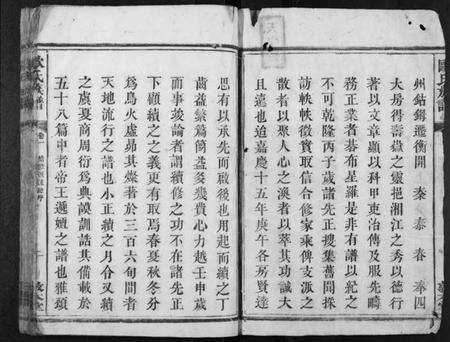 州鈷鉧遷衡開 秦 泰 春 奉四
大房得壽嶽之靈挹湘江之秀以德行
著以文章顯以科甲吏治傳及服先疇
務正業者碁布星羅是非有譜以紀之
不可乾隆丙子歲諸先正搜集舊聞採
訪軼軼徵實取信合修家乘俾支派之
散者以聚人心之渙者以萃其功誠大
且遠也迨嘉慶十五年庚午各房賢達
思有以承先而啟後也用起而續之丁
齒益繁篇簡益多幾費心力越壬申歲
而事竣論者謂續修之功不在諸先正
下顧續之之義更有取焉春夏秋冬分
鳥火虛昴其燦著於三百六旬間者
天地流行之譜也小正續之月令又續
之虞夏商周衍為典謨訓誥其備載於
五十八篇中者帝王遞嬗之譜也雅頌
歐氏族譜
卷一
敦
歐氏族譜